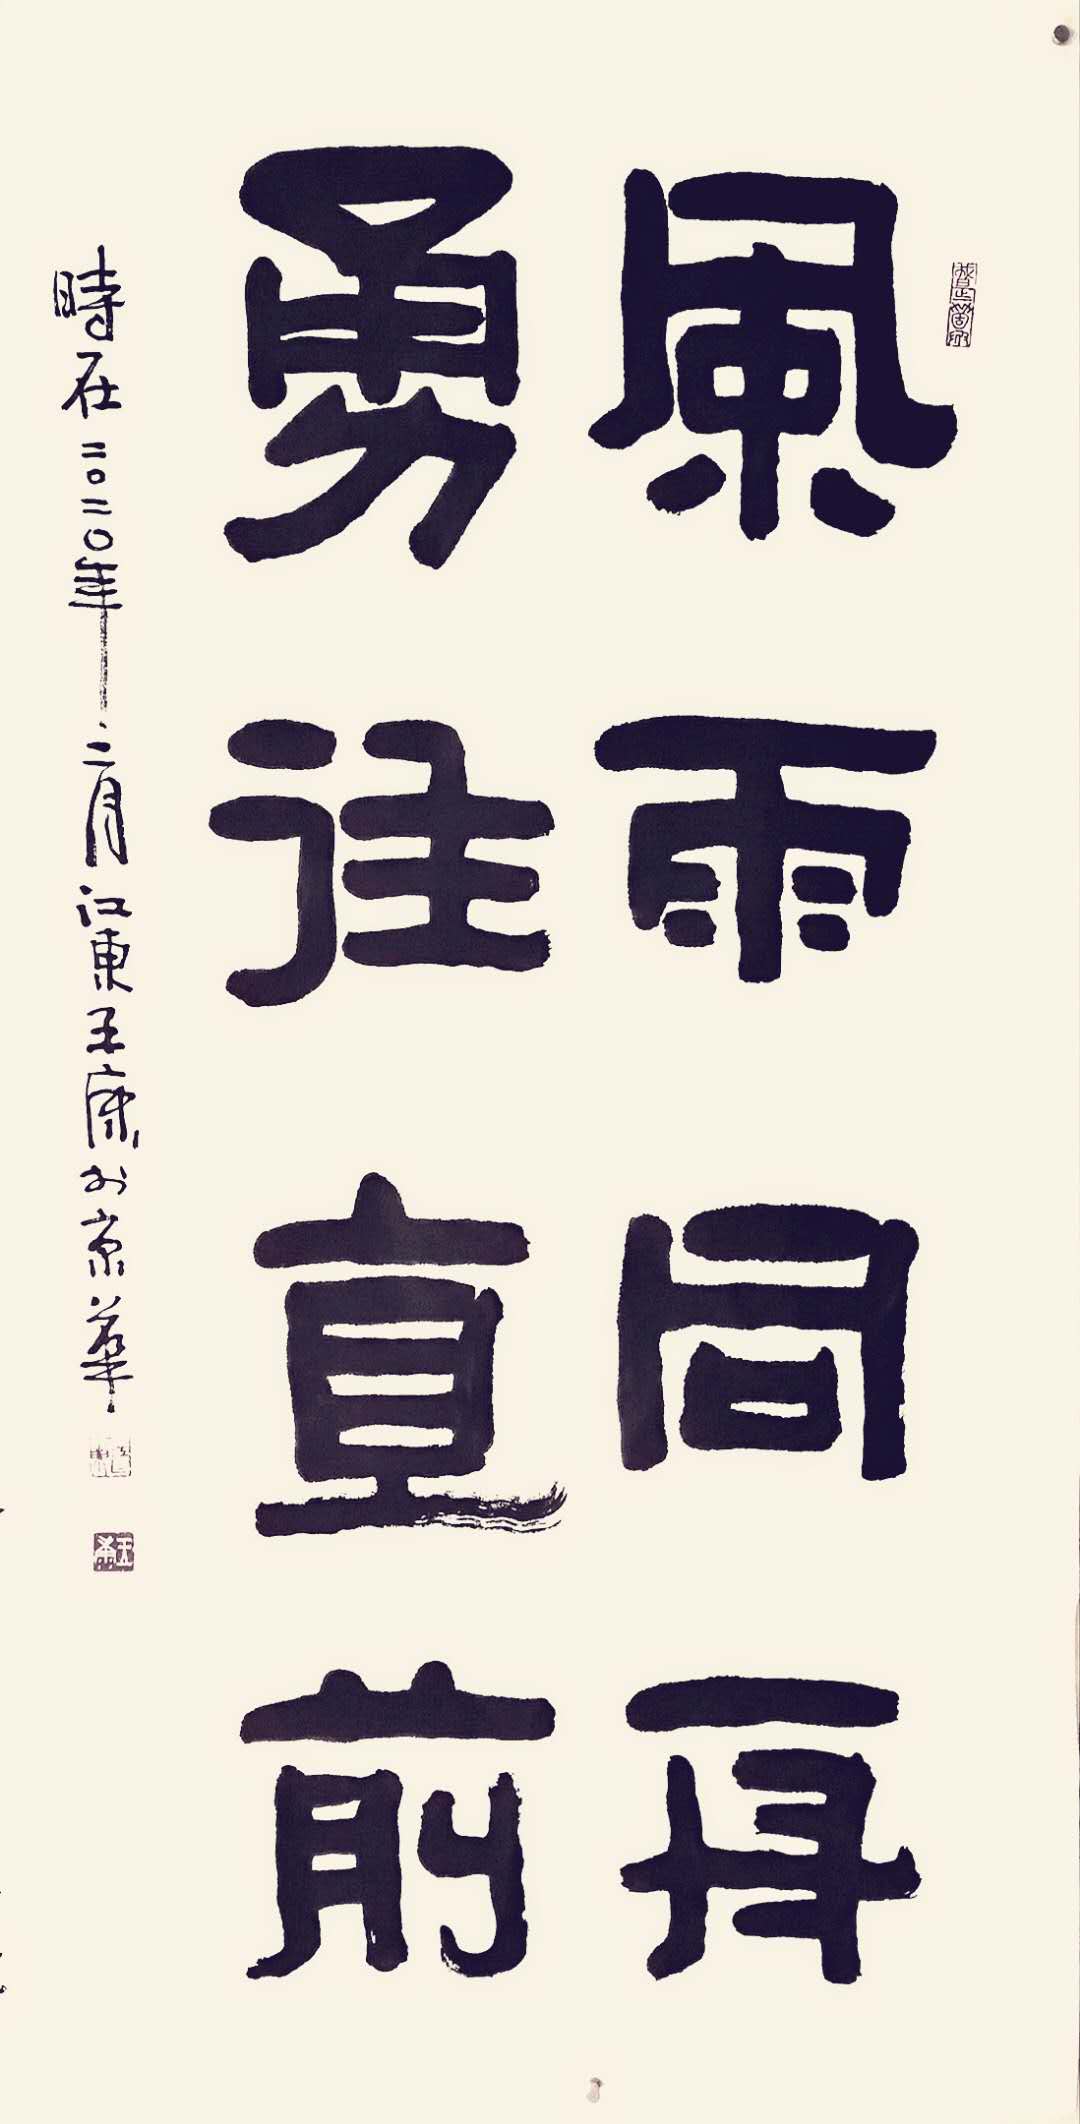 風雨同舟
勇往直前
時在二〇二〇年二月江東王康於京華